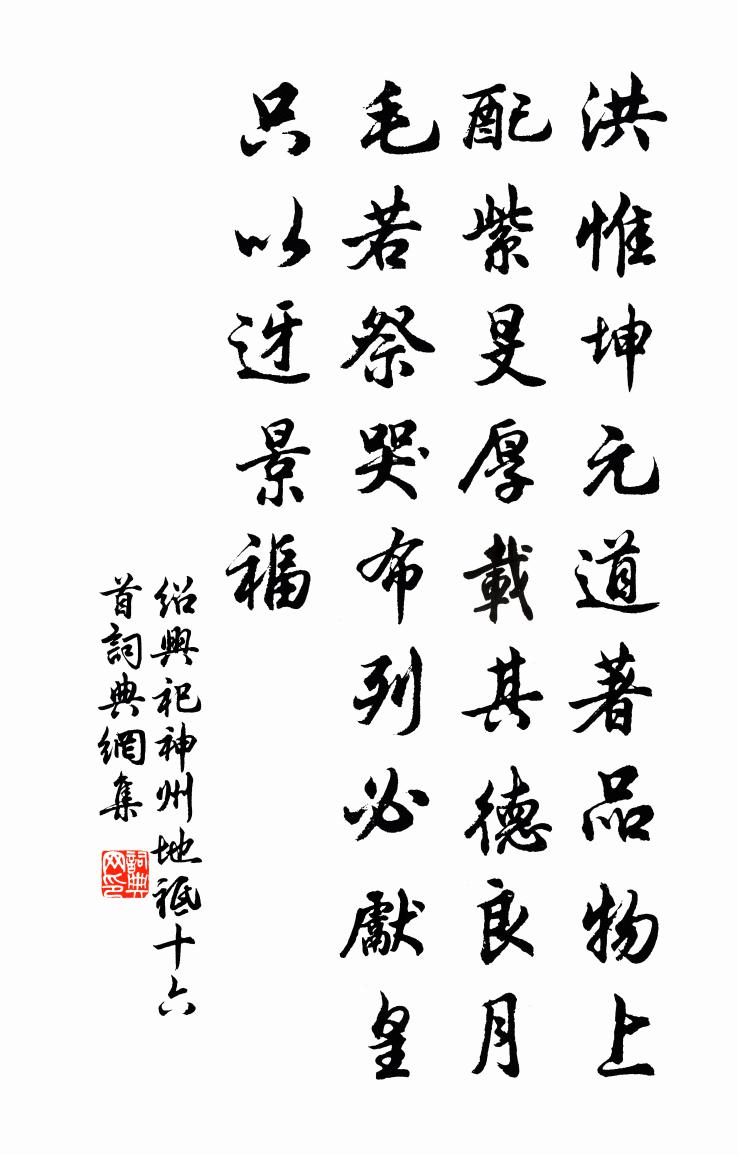 洪惟坤元道著品物上
配紫旻厚載其德良月
毛若祭哭布列必獻皇
只以迓景福
紹興祀神州地祗十六
首詞典網集
詞典网印